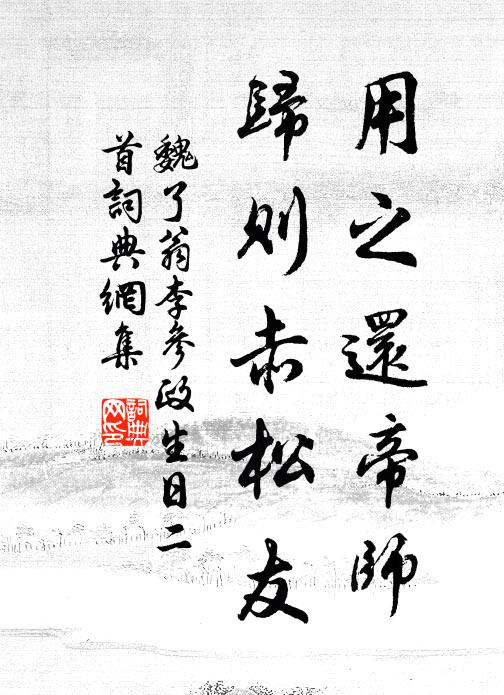 用之還帝師
歸則赤松友
魏了翁李參政生日二
首詞典網集
詞典
网印